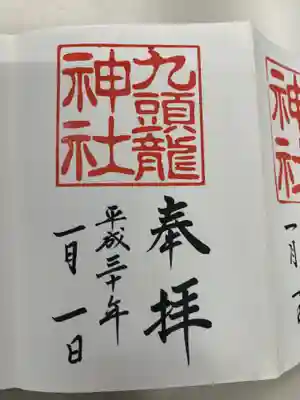 九頭龍
神社
奉拝
平成三十年
一月一日
神
社
一月